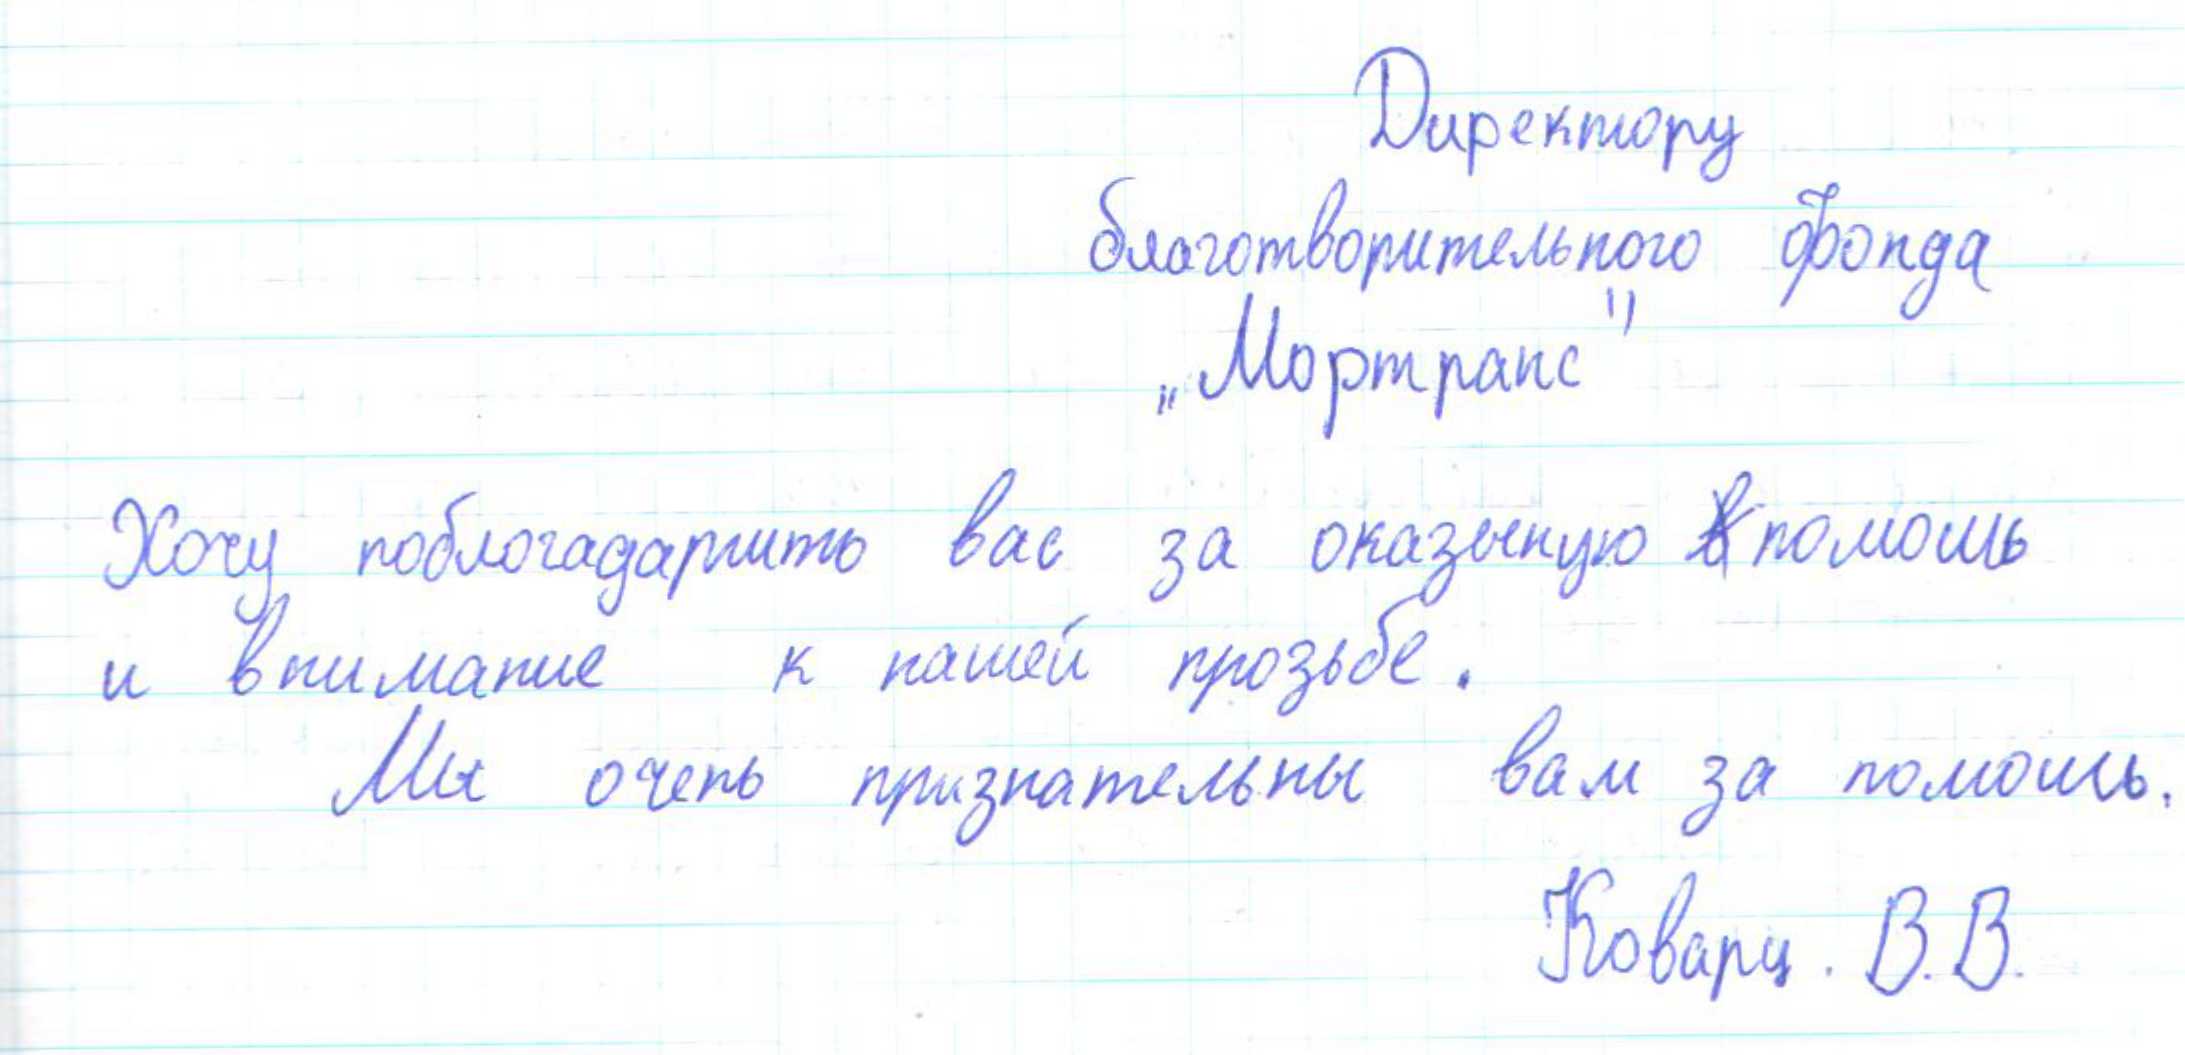 Директору
благотворительного фонда
„Мортранс"
Хочу поблогадарить вас за оказыную помошь
и внимание к нашей прозьбе.
Мы очень признательны вам за помошь.
Коварц. В.В.